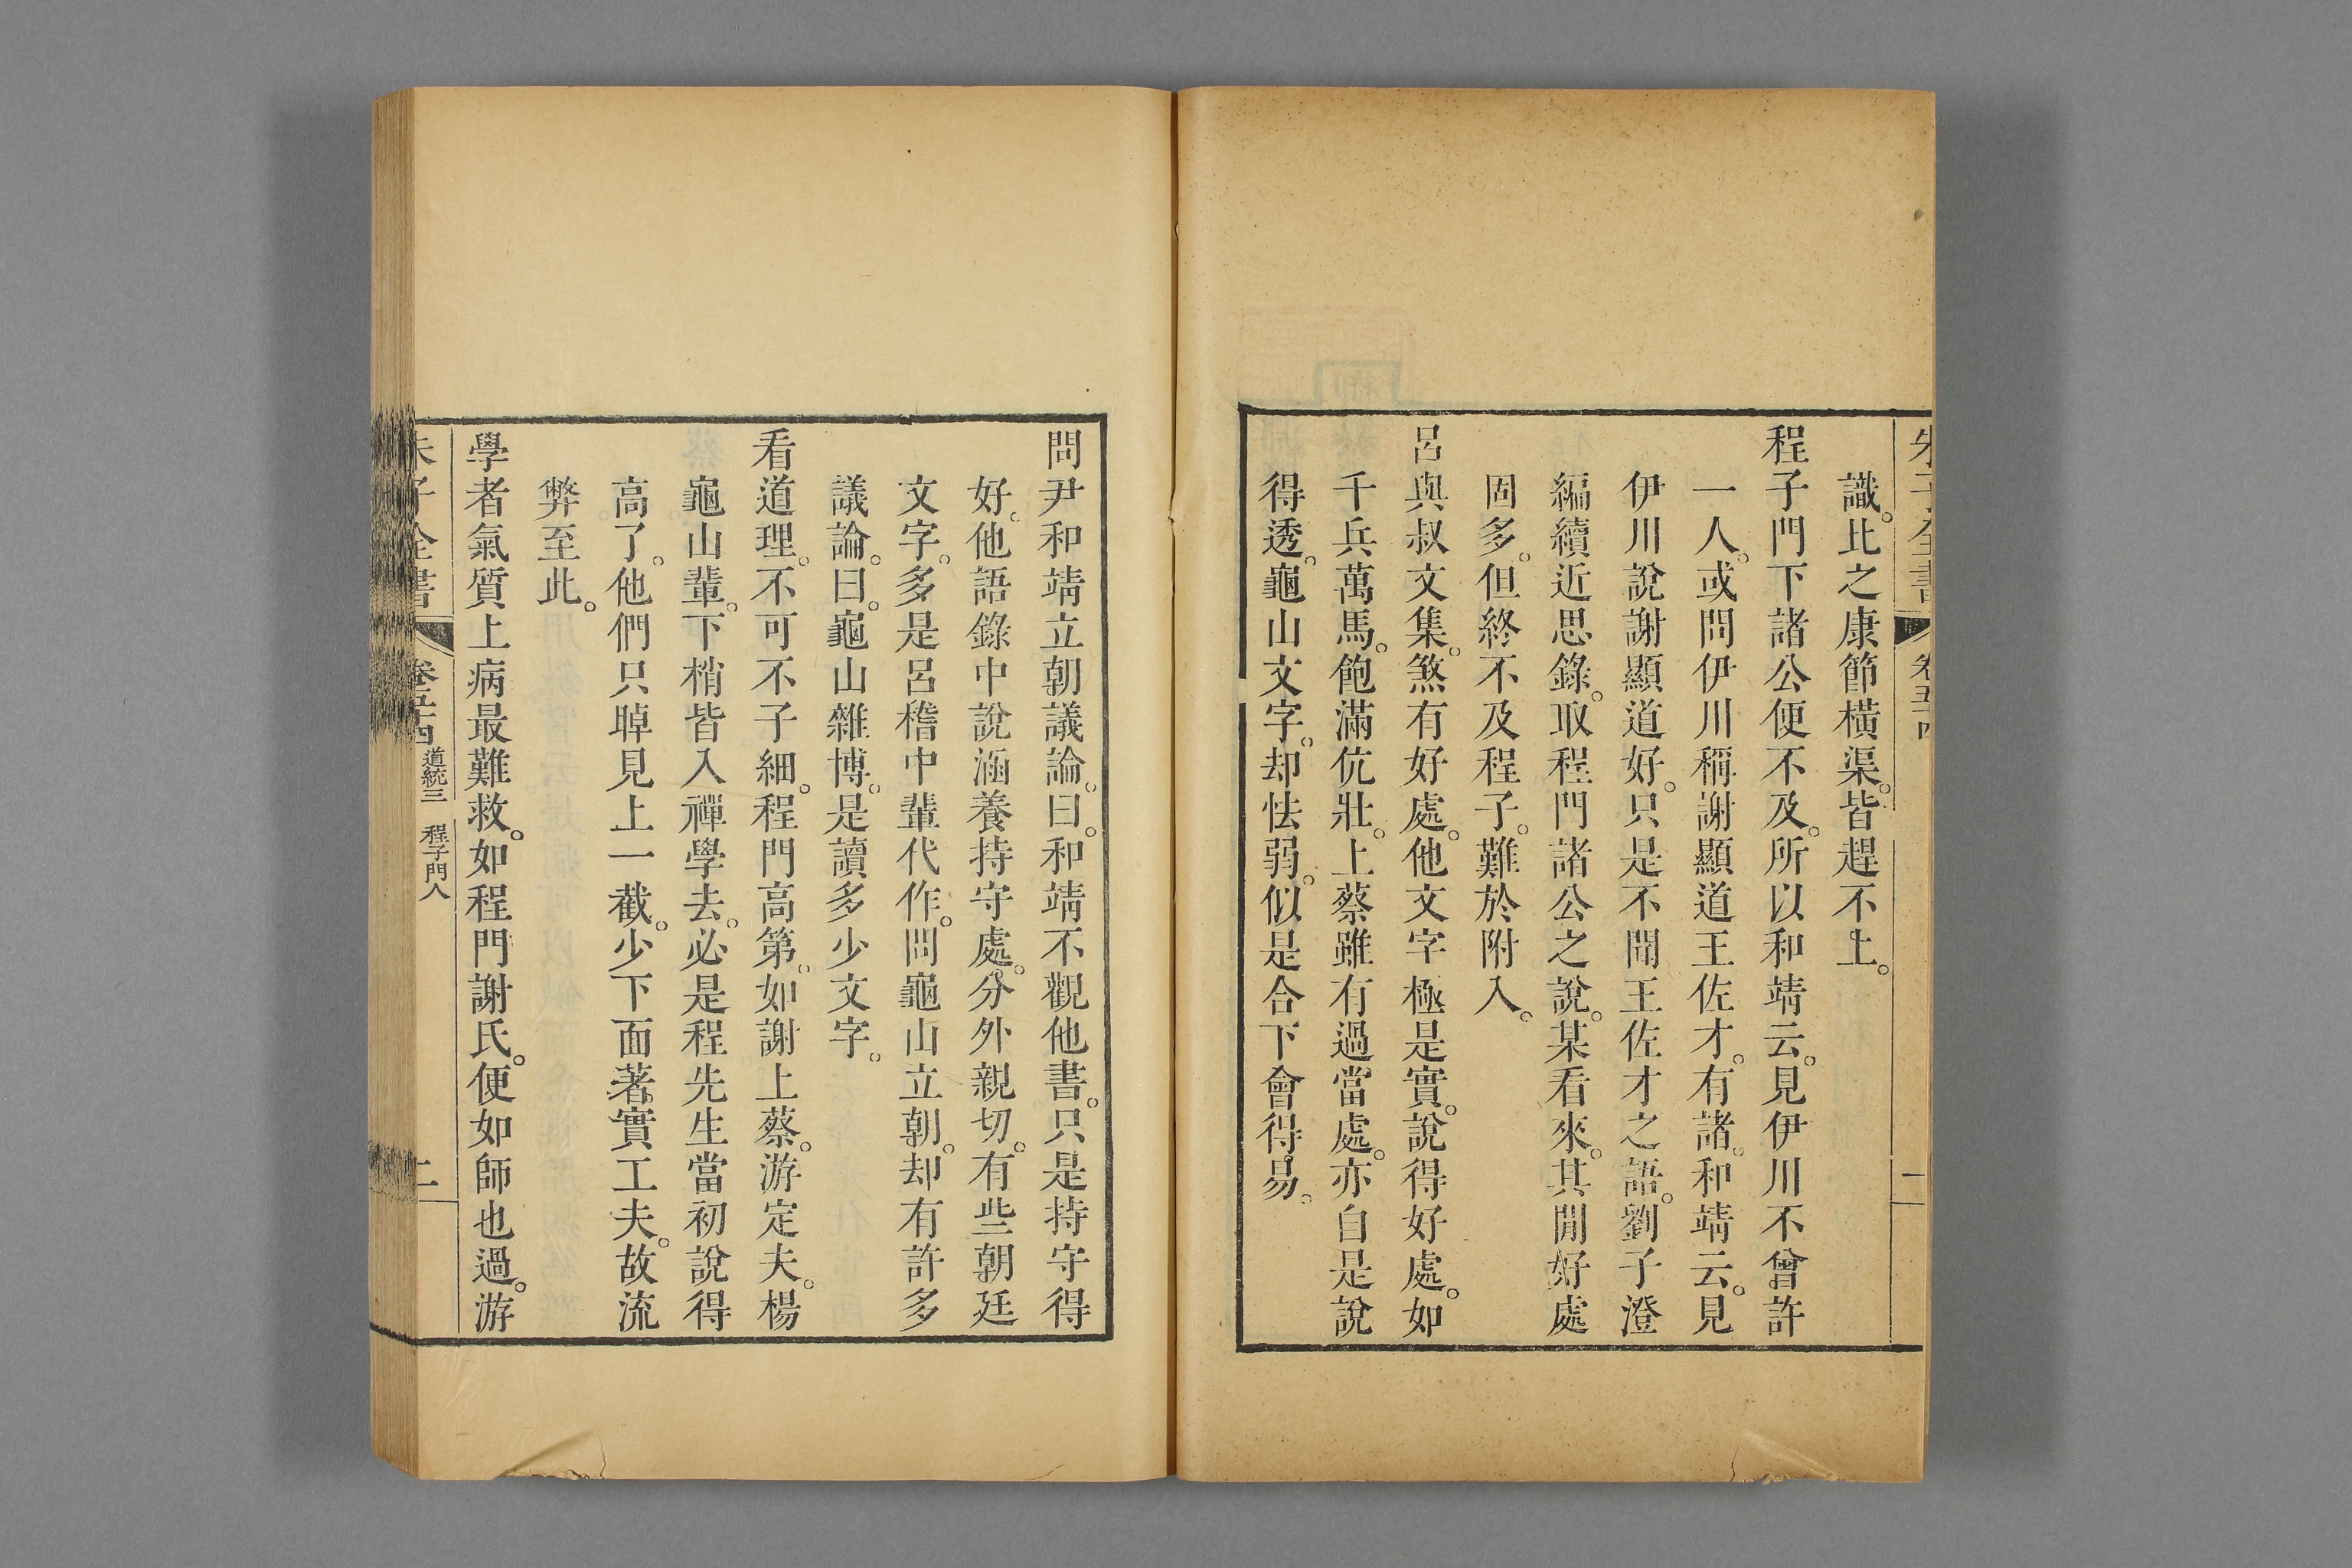 識。比之康節橫渠。皆趕不上。
程子門下諸公便不及。所以和靖云。見伊川不曾許
一人。或問伊川稱謝顯道王佐才。有諸。和靖云。見
伊川說謝顯道好。只是不聞王佐才之語。劉子澄
編續近思錄。取程門諸公之說。某看來。其閒好處
固多。但終不及程子。難於附入。
呂與叔文集。煞有好處。他文字極是實。說得好處。如
千兵萬馬。飽滿伉壯。上蔡雖有過當處。亦自是說
得透。龜山文字。却怯弱。似是合下會得易。
問尹和靖立朝議論。曰。和靖不觀他書。只是持守得
好。他語錄中說涵養持守處。分外親切。有些朝廷
文字。多是呂稽中輩代作。問龜山立朝。却有許多
議論。曰。龜山雜博。是讀多少文字。
看道理。不可不子細。程門高第。如謝上蔡。游定夫。楊
龜山輩。下梢皆入禪學去。必是程先生當初說得
高了。他們只晫見上一截。少下面著實工夫。故流
弊至此。
學者氣質上病最難救。如程門謝氏。便如師也過。游
朱子全書
卷五十四
道統三 程子門人
二